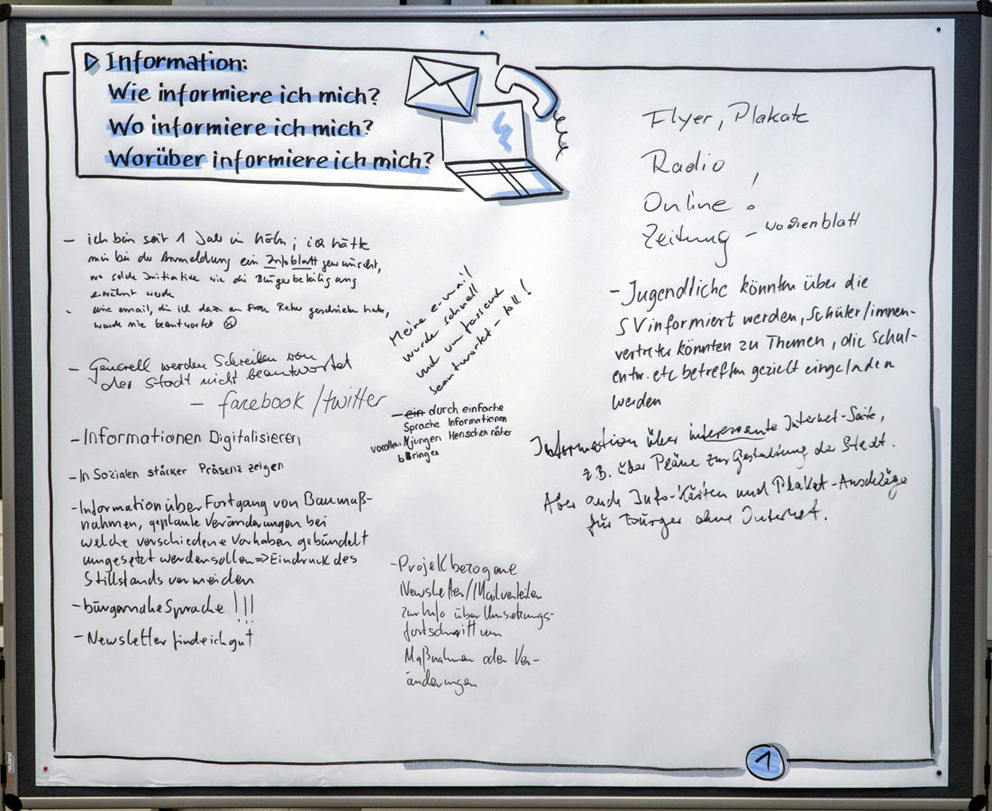 Information:
Wie informiere ich mich?
Wo informiere ich mich?
Worüber informiere ich mich?
- ich bin seit 1 Jahr in Köln; ich hätte
mir bei der Anmeldung ein Infoblatt gewünscht,
wo solche Initiative wie die Bürgerbeteiligung
erwähnt werde
eine email, die ich dazu an Frau geschrieben habe,
wurde nie beantwortet ☹
- Generell werden Schreiben von
der Stadt nicht beantwortet
- facebook / twitter
- Informationen Digitalisieren
- In Sozialen stärker Präsenz zeigen
- Information über Fortgang von Baumaß-
nahmen, geplante Veränderungen bei
welche verschiedene Vorhaben gebündelt
umgesetzt werden sollen => Eindruck des
Stillstands vermeiden
- bürgernahe Sprache !!!
- Newsletter finde ich gut
Meine e-mail
wurde schnell
und umfassend
beantwortet - toll!
- ein durch einfache
Sprache Informationen
jungen Menschen näher
Bringen
- Projektbezogene
Newsletter/Mailverteiler
zur Info über Umsetzungs-
fortschritt von
Maßnahmen oder Ver-
änderungen
Flyer, Plakate
Radio
Online !
Zeitung - Wochenblatt
- Jugendliche könnten über die
SV informiert werden, Schüler/innen-
vertreter könnten zu Themen, die Schul-
entw. etc betreffen gezielt eingeladen
werden
Information über interessante Internet-Seite,
z.B. über Pläne zur Gestaltung der Stadt.
Aber auch Info-Kästen und Plakat-Anschläge
für Bürger ohne Internet.
1
neuland